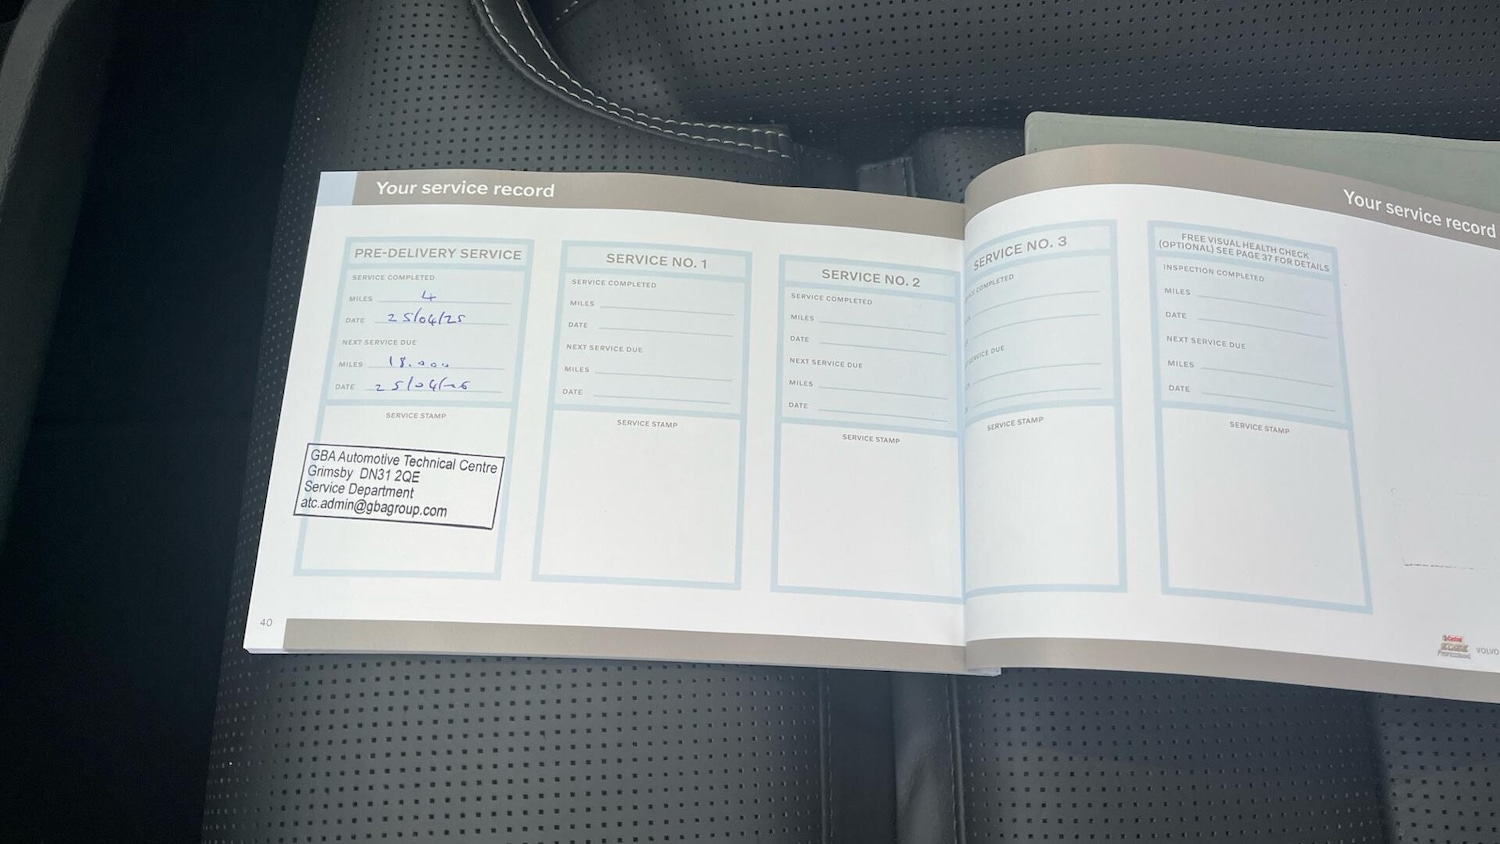 Your service record
PRE-DELIVERY SERVICE
SERVICE COMPLETED
MILES 4
DATE 25/04/25
NEXT SERVICE DUE
MILES 18.000
DATE 25/04/26
SERVICE STAMP
GBA Automotive Technical Centre
Grimsby DN31 2QE
Service Department
atc.admin@gbagroup.com
SERVICE NO. 1
SERVICE COMPLETED
MILES
DATE
NEXT SERVICE DUE
MILES
DATE
SERVICE STAMP
SERVICE NO. 2
SERVICE COMPLETED
MILES
DATE
NEXT SERVICE DUE
MILES
DATE
SERVICE STAMP
40
Your service record
SERVICE NO. 3
COMPLETED
SERVICE DUE
SERVICE STAMP
FREE VISUAL HEALTH CHECK
(OPTIONAL) SEE PAGE 37 FOR DETAILS
INSPECTION COMPLETED
MILES
DATE
NEXT SERVICE DUE
MILES
DATE
SERVICE STAMP
Castrol
EDGE
Professional
VOLVO